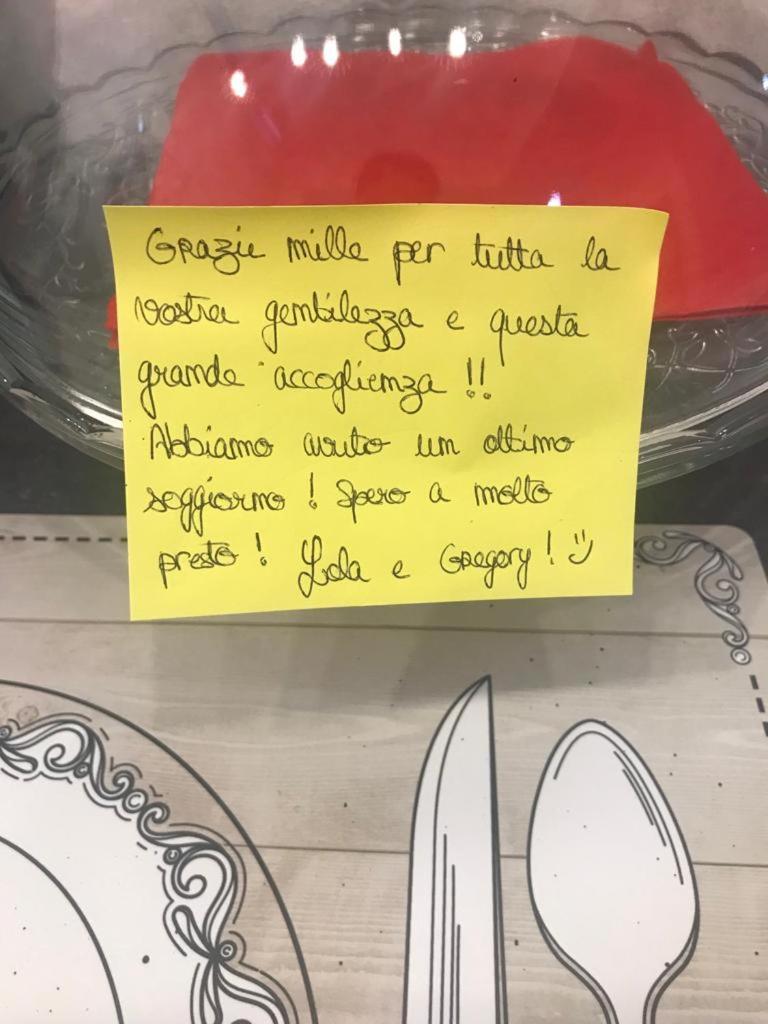 Grazie mille per tutta la
vostra gentilezza e questa
grande accoglienza !!
Abbiamo avuto un ottimo
soggiorno ! Spero a molto
presto ! Lola e Gregory ! :)